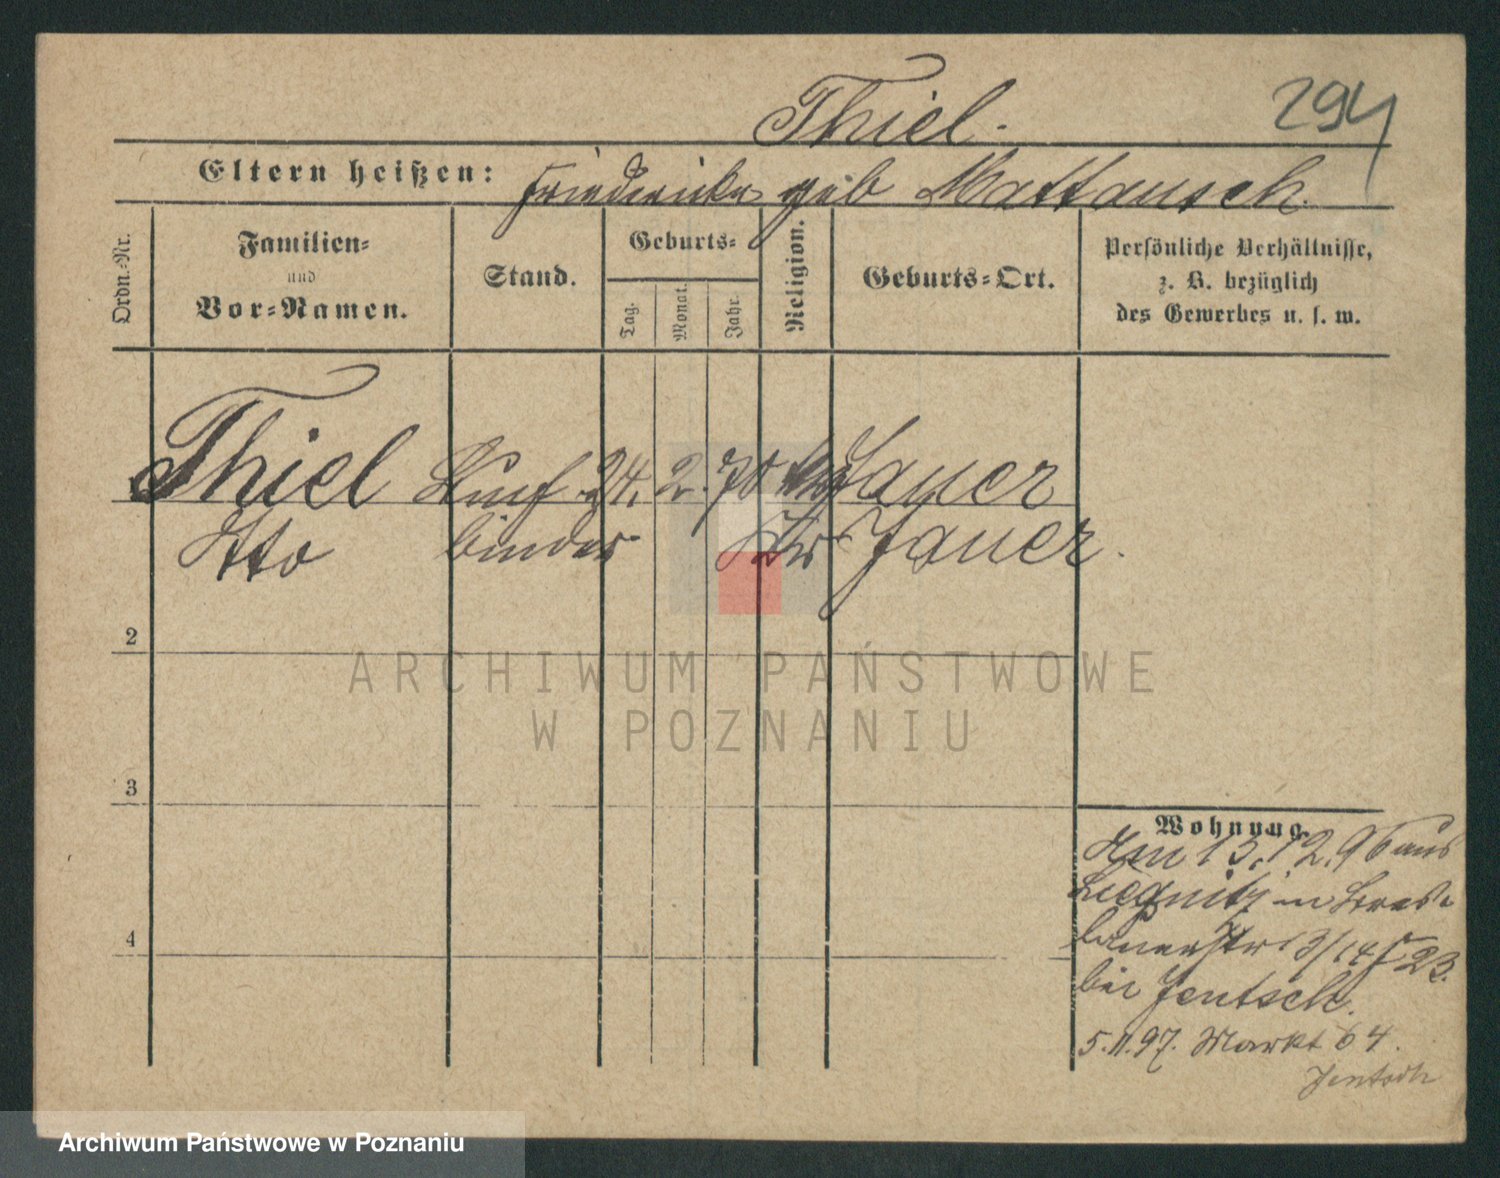 Thiel.
294
Eltern heißen: Friedericke geb Mattausch.
Ordn.-Nr.
Familien-
und
Vor-Namen.
Stand.
Geburts-
Tag.
Monat.
Jahr.
Religion.
Geburts-Ort.
Persönliche Verhältnisse,
z. B. bezüglich
des Gewerbes u. s. w.
Thiel 24. 2. 70 Jauer
Otto binder Kr Jauer.
2
3
4
Wohnung.
Am 13.12.96 aus
Liegnitz in Bres-
lauerstr 13/14
bei Jentsch.
5.11.97. Markt 64.
Jentsch
ARCHIWUM PAŃSTWOWE
W POZNANIU
Archiwum Państwowe w Poznaniu